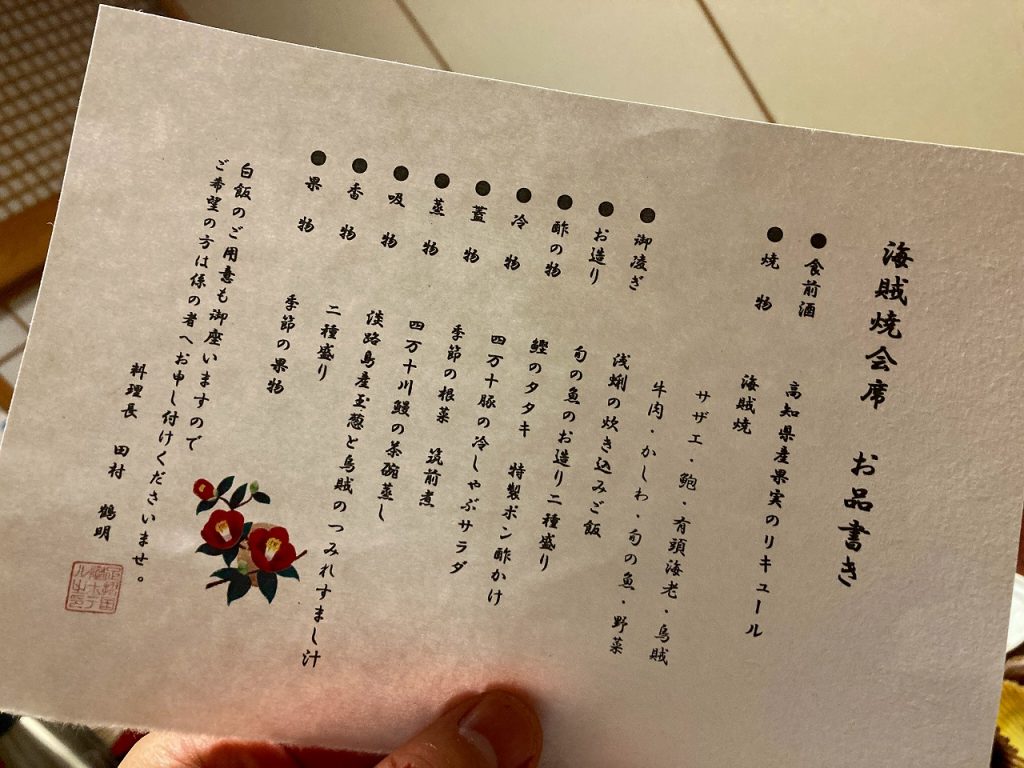 海賊焼会席 お品書き
●食前酒 高知県産果実のリキュール
●焼物 海賊焼
サザエ・鮑・有頭海老・烏賊
牛肉・かしわ・旬の魚・野菜
●御凌ぎ 浅蜊の炊き込みご飯
●お造り 旬の魚のお造り二種盛り
●酢の物 鰹のタタキ 特製ポン酢かけ
●冷物 四万十豚の冷しゃぶサラダ
●蓋物 季節の根菜 筑前煮
●蒸物 四万十川鰻の茶碗蒸し
●吸物 淡路島産玉葱と烏賊のつみれすまし汁
●香物 二種盛り
●果物 季節の果物
白飯のご用意も御座いますので
ご希望の方は係の者へお申し付けくださいませ。
料理長 田村 鶴明